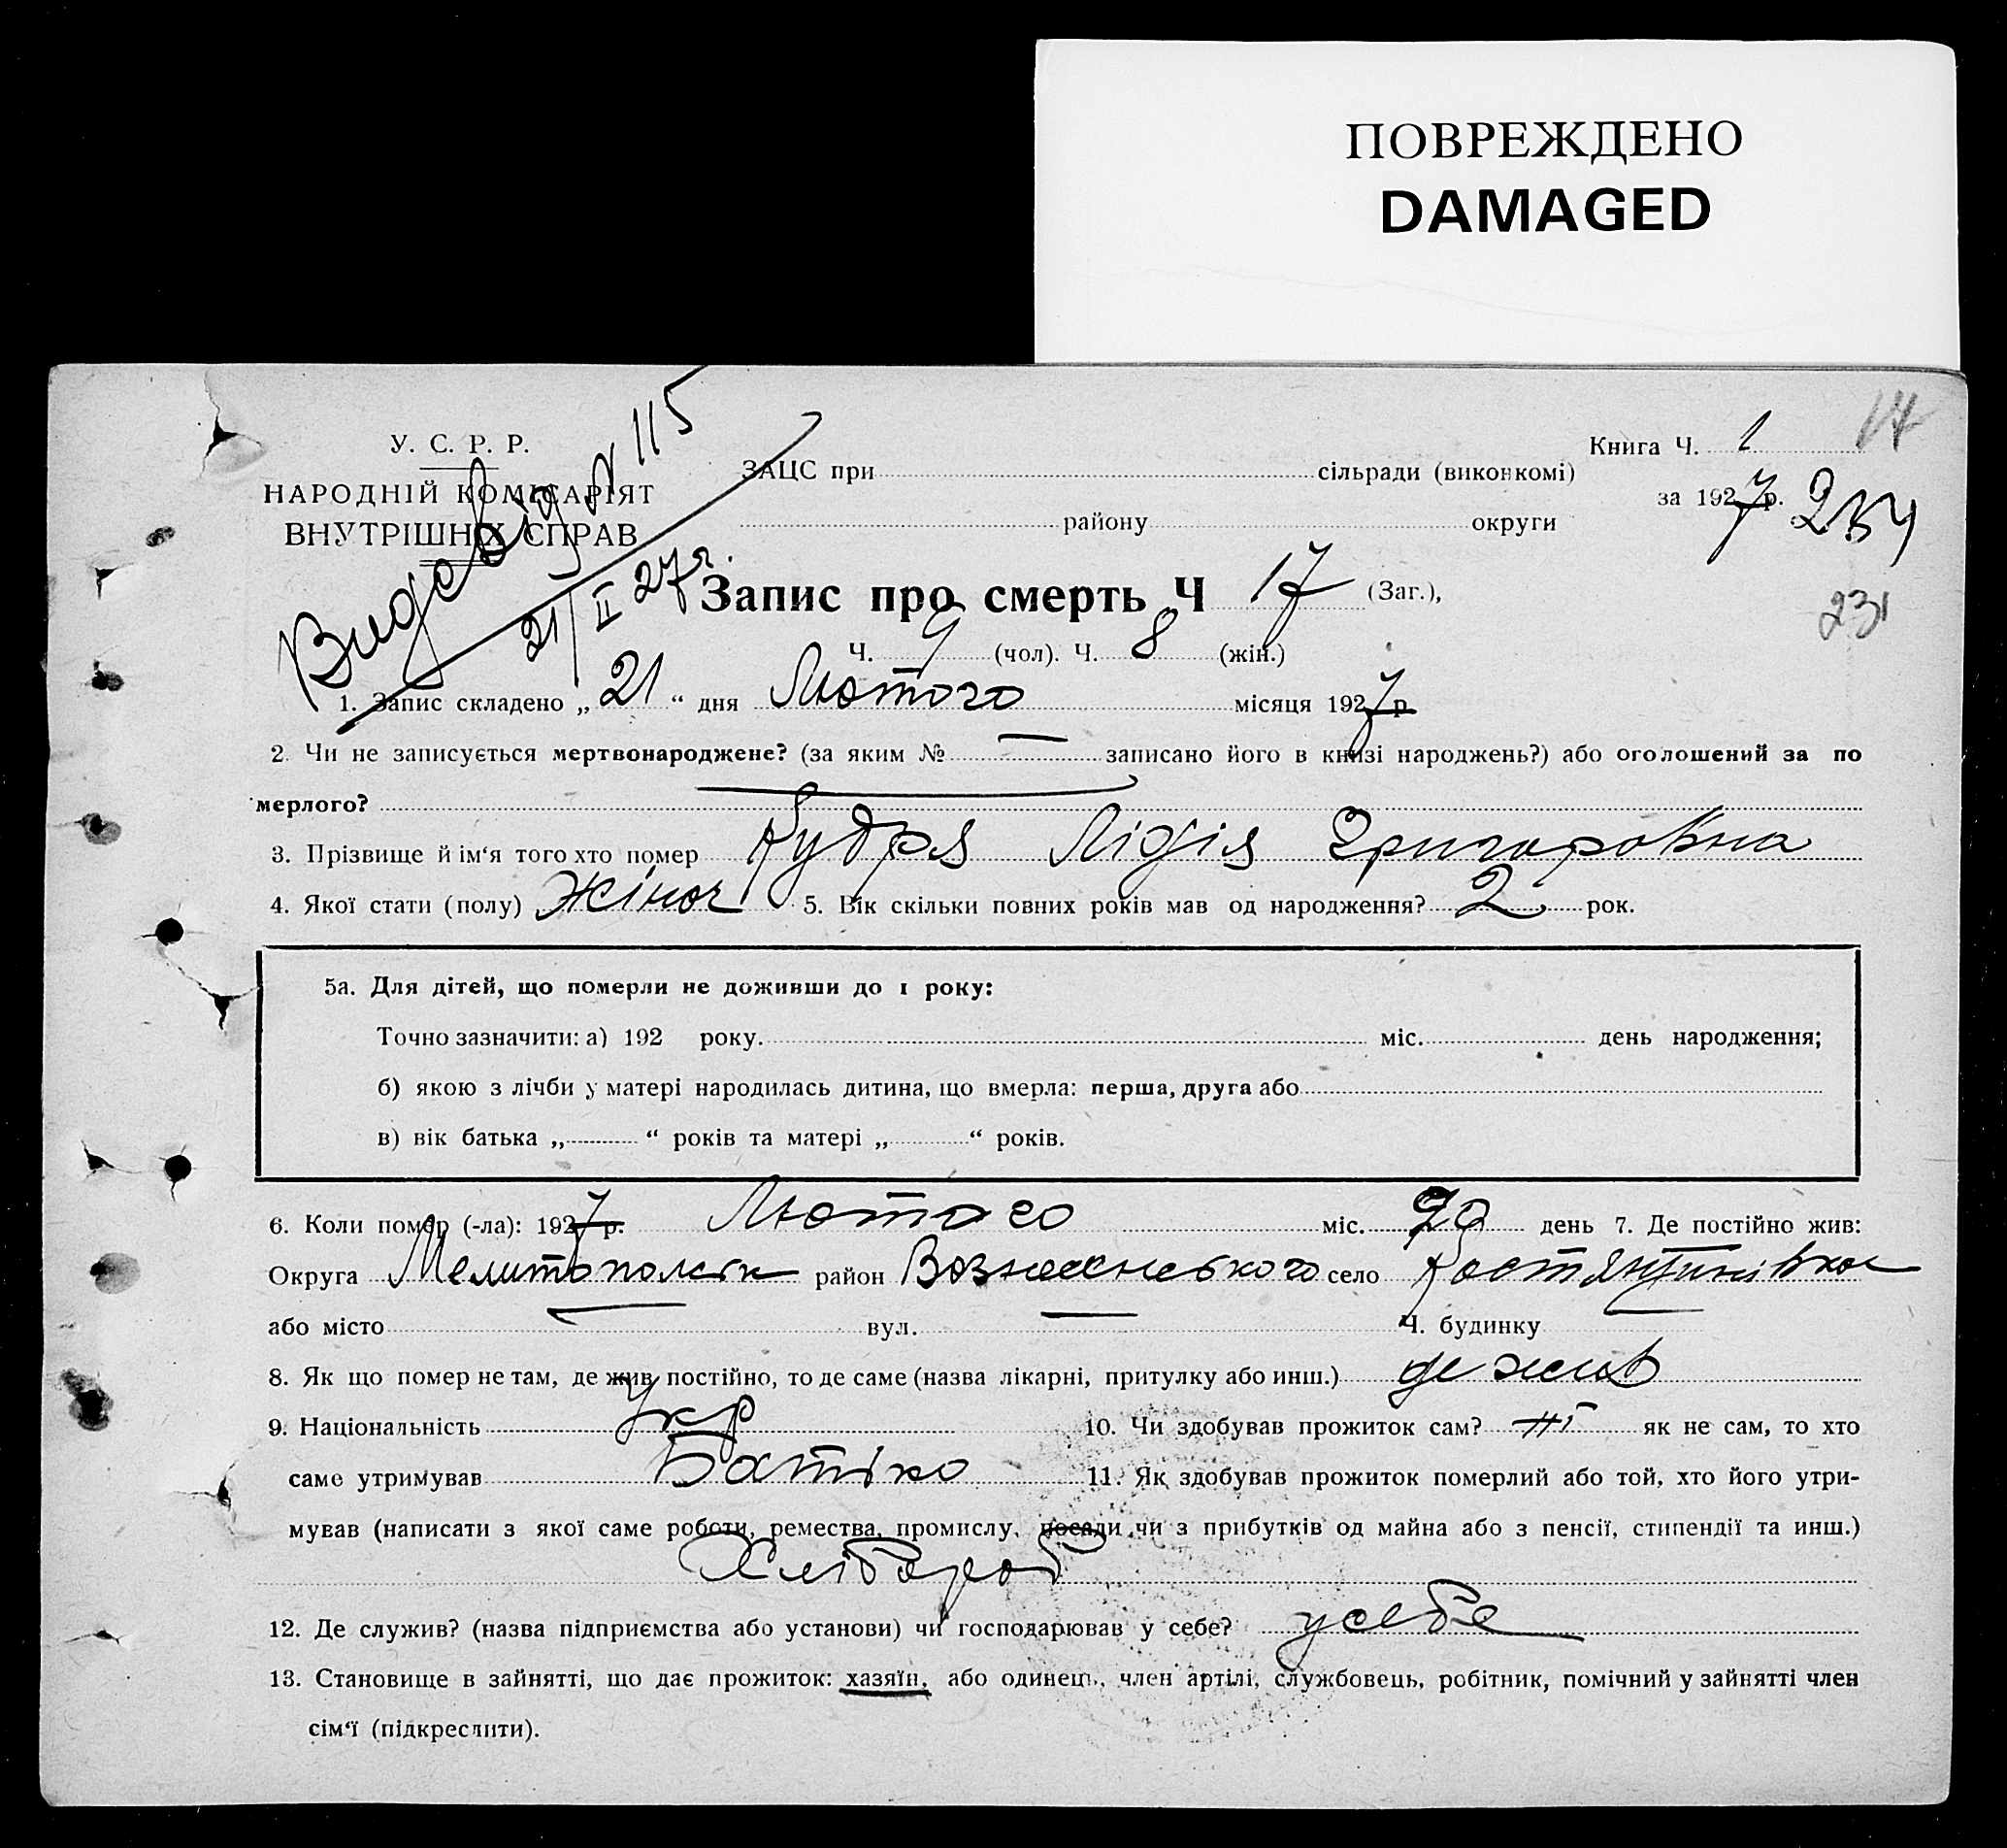 ПОВРЕЖДЕНО
DAMAGED
У. С. Р. Р.
НАРОДНІЙ КОМІСАРІЯТ
ВНУТРІШНІХ СПРАВ
№ 115
21/II 27 г.
ЗАЦС при сільради (виконкомі)
району округи
Книга Ч. 1
17
за 1927 р.
231
Запис про смерть Ч 17 (Заг.),
Ч. 9 (чол). Ч. 8 (жін.)
1. Запис складено „ 21 “ дня Лютого місяця 1927 р.
2. Чи не записується мертвонароджене? (за яким № — записано його в книзі народжень?) або оголошений за по
мерлого?
3. Прізвище й ім‘я того хто помер Кудря Лідія Григоровна
4. Якої стати (полу) Жіноч 5. Вік скільки повних років мав од народження? 2 рок.
5а. Для дітей, що померли не доживши до 1 року:
Точно зазначити: а) 192 року. міс. день народження;
б) якою з лічби у матері народилась дитина, що вмерла: перша, друга або
в) вік батька „ “ років та матері „ “ років.
6. Коли помер (-ла): 1927 р. Лютого міс. 20 день 7. Де постійно жив:
Округа Мелитопольск район Вознесенського село Костянтинівка
або місто — вул. — Ч. будинку —
8. Як що помер не там, де жив постійно, то де саме (назва лікарні, притулку або инш.) де жив
9. Національність Укр 10. Чи здобував прожиток сам? ні як не сам, то хто
саме утримував Батько 11. Як здобував прожиток померлий або той, хто його утри-
мував (написати з якої саме роботи, ремества, промислу, посади чи з прибутків од майна або з пенсії, стипендії та инш.)
Хлібороб
12. Де служив? (назва підприємства або установи) чи господарював у себе? у себе
13. Становище в зайнятті, що дає прожиток: хазяїн, або одинець, член артілі, службовець, робітник, помічний у зайнятті член
сім‘ї (підкреслити).